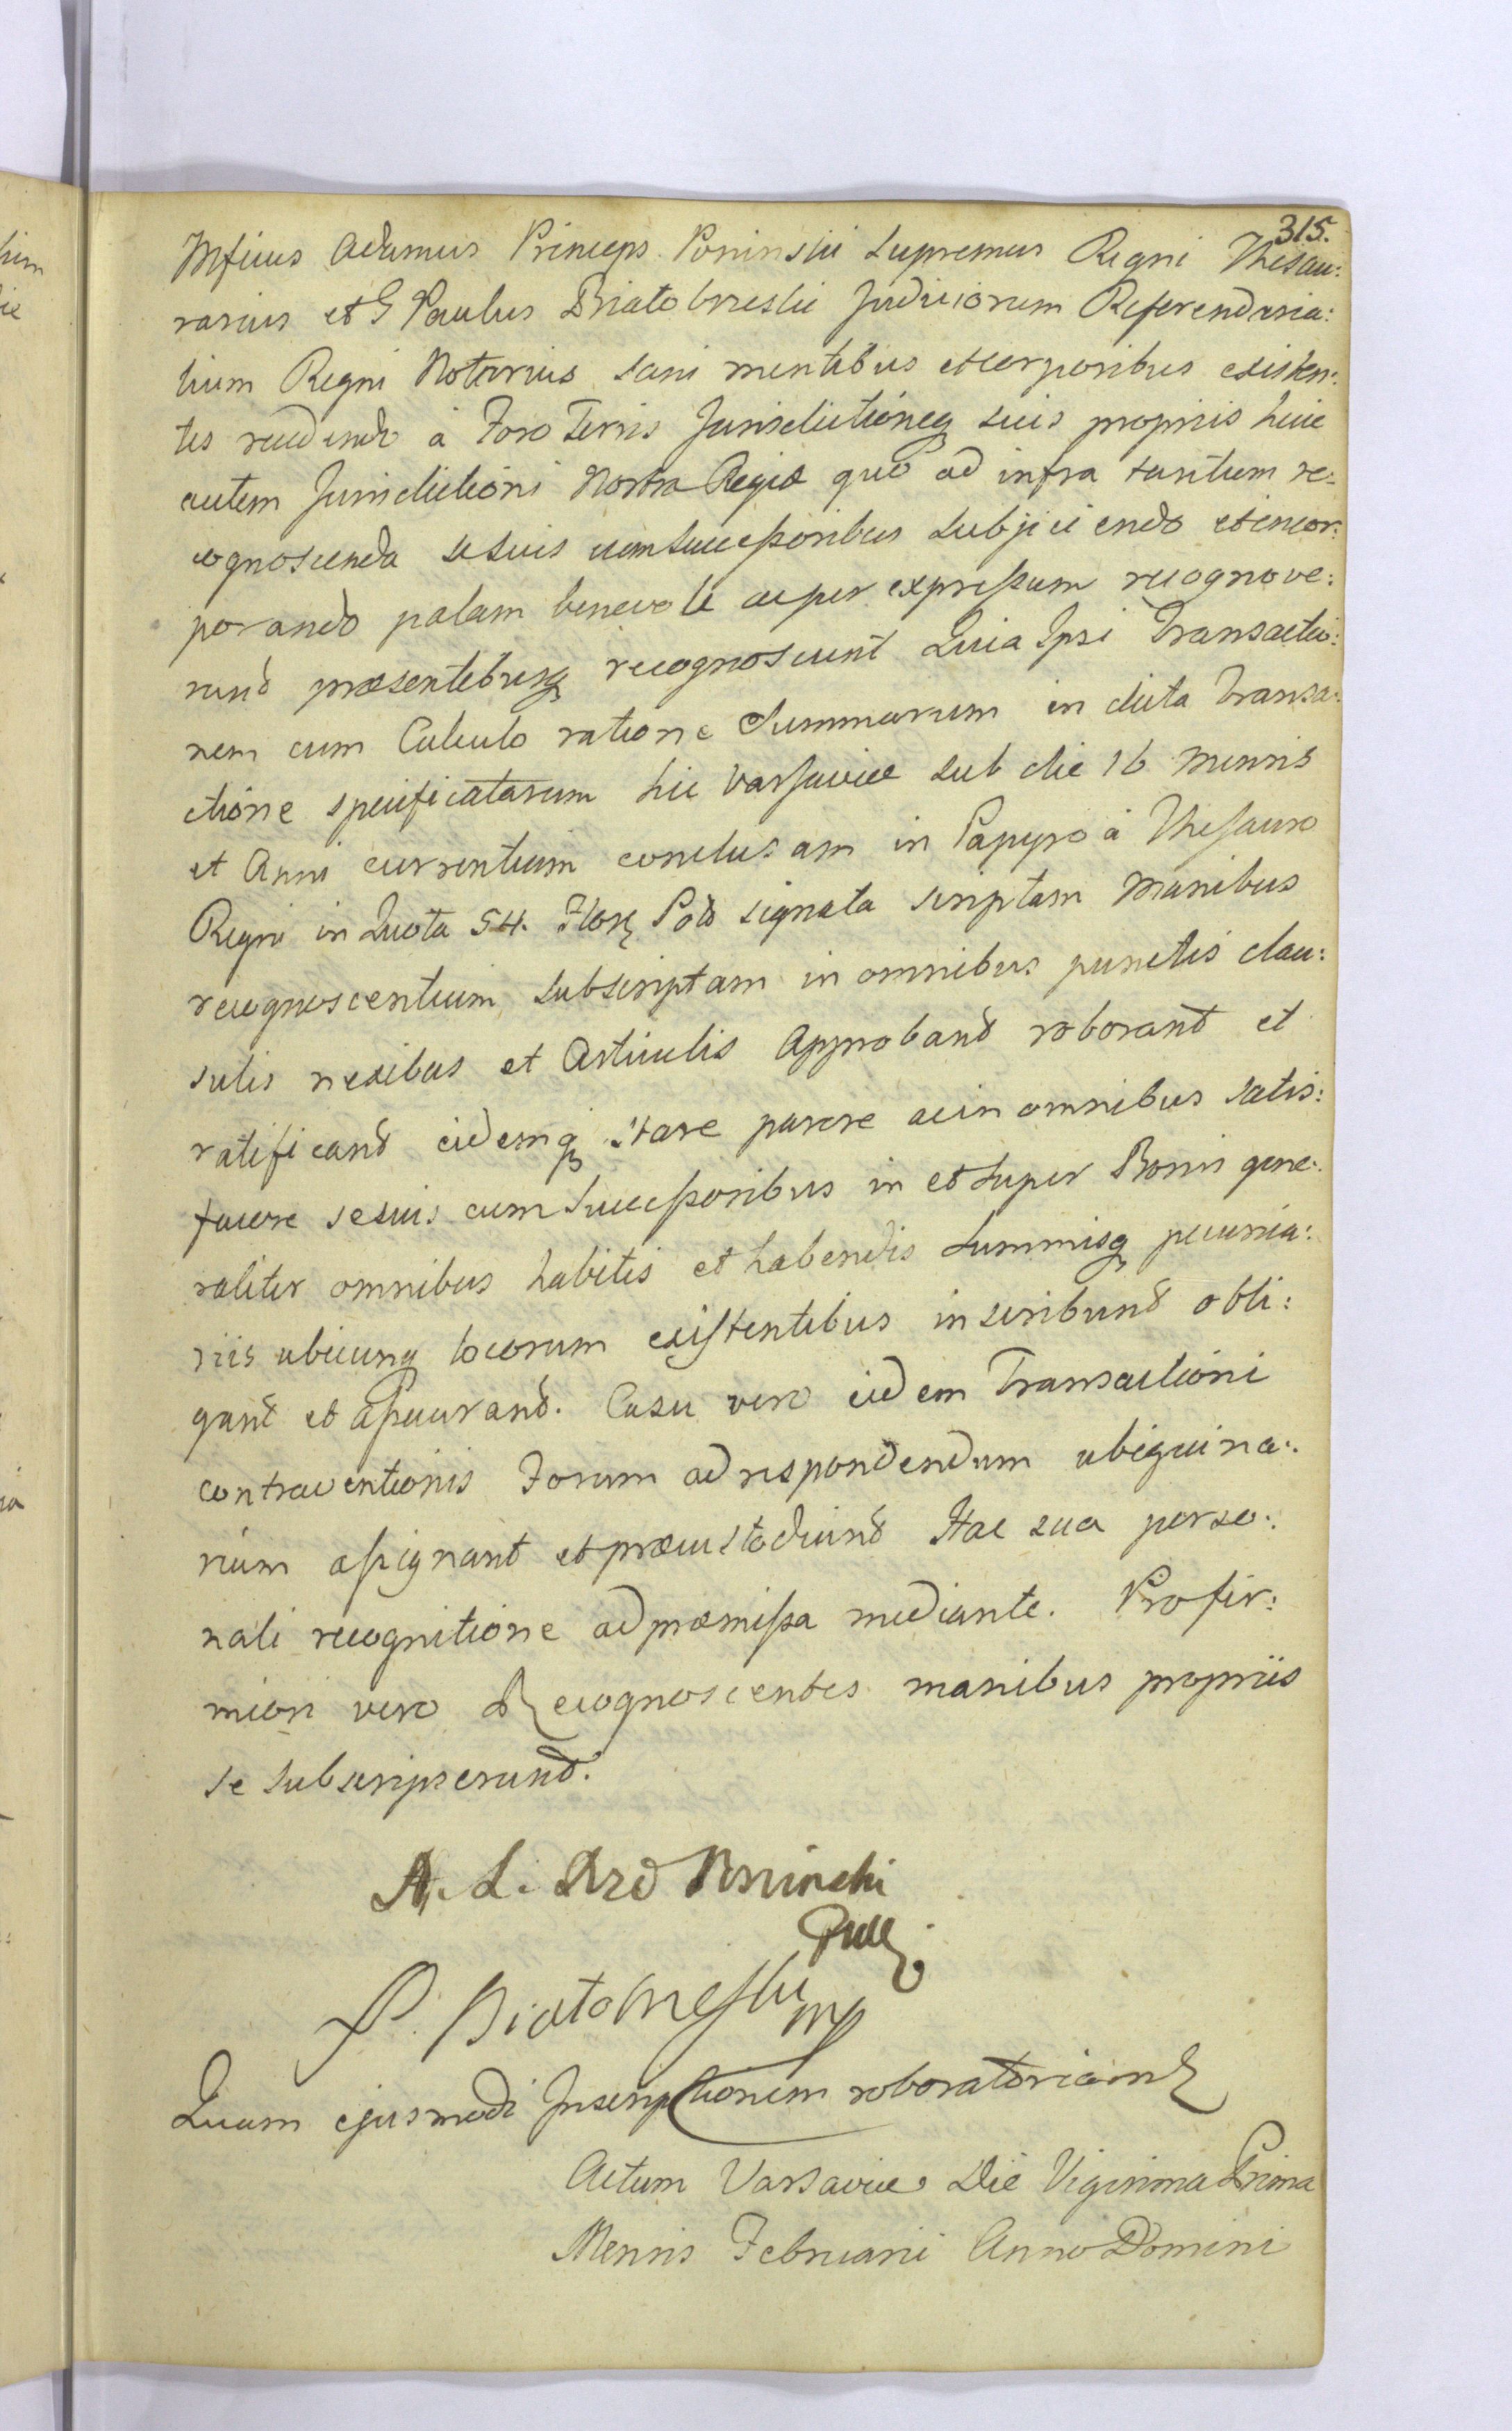 315.
Mficus Adamus Princeps Poninski Supremus Regni Thesau:
rarius et G Paulus Białobrzeski Judiciorum Referendaria:
lium Regni Notarius sani mentibus et corporibus existen:
tes recedendo à Foro Terris Jurisdictioneq suis propriis huic
autem Jurisdictioni Nostra Regiæ quo ad infra tantum re:
cognoscenda se suis cum Successoribus subjiciendo et incor:
porando palam benevole ac per expressum recognove:
rund præsentibusq recognoscunt Quia Ipsi Transactio:
nem cum Calculo ratione Summarum in dicta Transa:
ctione specificatarum hic Varsaviæ sub die 16 Mensis
et Anni currentium conclusam in Papyro à Thesauro
Regni in Quota 54. Flor Pol signata scriptam Manibus
recognoscentium subscriptam in omnibus punctis clau:
sulis nexibus et Articulis Approband roborant et
ratificand eidemq stare parere ac in omnibus satis:
facere se suis cum Successoribus in et super Bonis gene:
raliter omnibus habitis et habendis Summisq pecunia:
riis ubicunq locorum existentibus inscribund obli:
gant et assecurand. Casu vero eidem Transactioni
contraventionis Forum ad respondendum ubiquina:
rium assignant et præcustodiund Hac sua perso:
nali recognitione ad præmissa mediante. Pro fir:
miori vero Recognoscentes manibus propriis
se subscripserund.
A. L. Xzd Poninski
P. Białobrzeski mp
Quam ejusmodi Inscriptionem roboratoriam
Actum Varsaviæ Die Vigesima Prima
Mensis Februarii Anno Domini